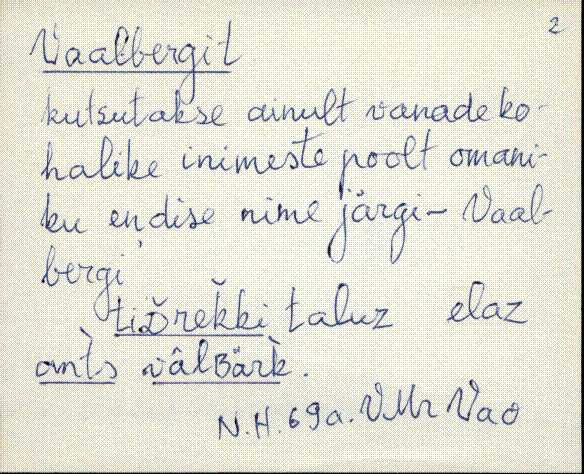 2
Vaalbergit
kutsutakse ainult vanade ko-
halike inimeste poolt omani-
ku endise nime järgi - Vaal-
bergi
taluz elaz
N.H. 69a. VMr Vao